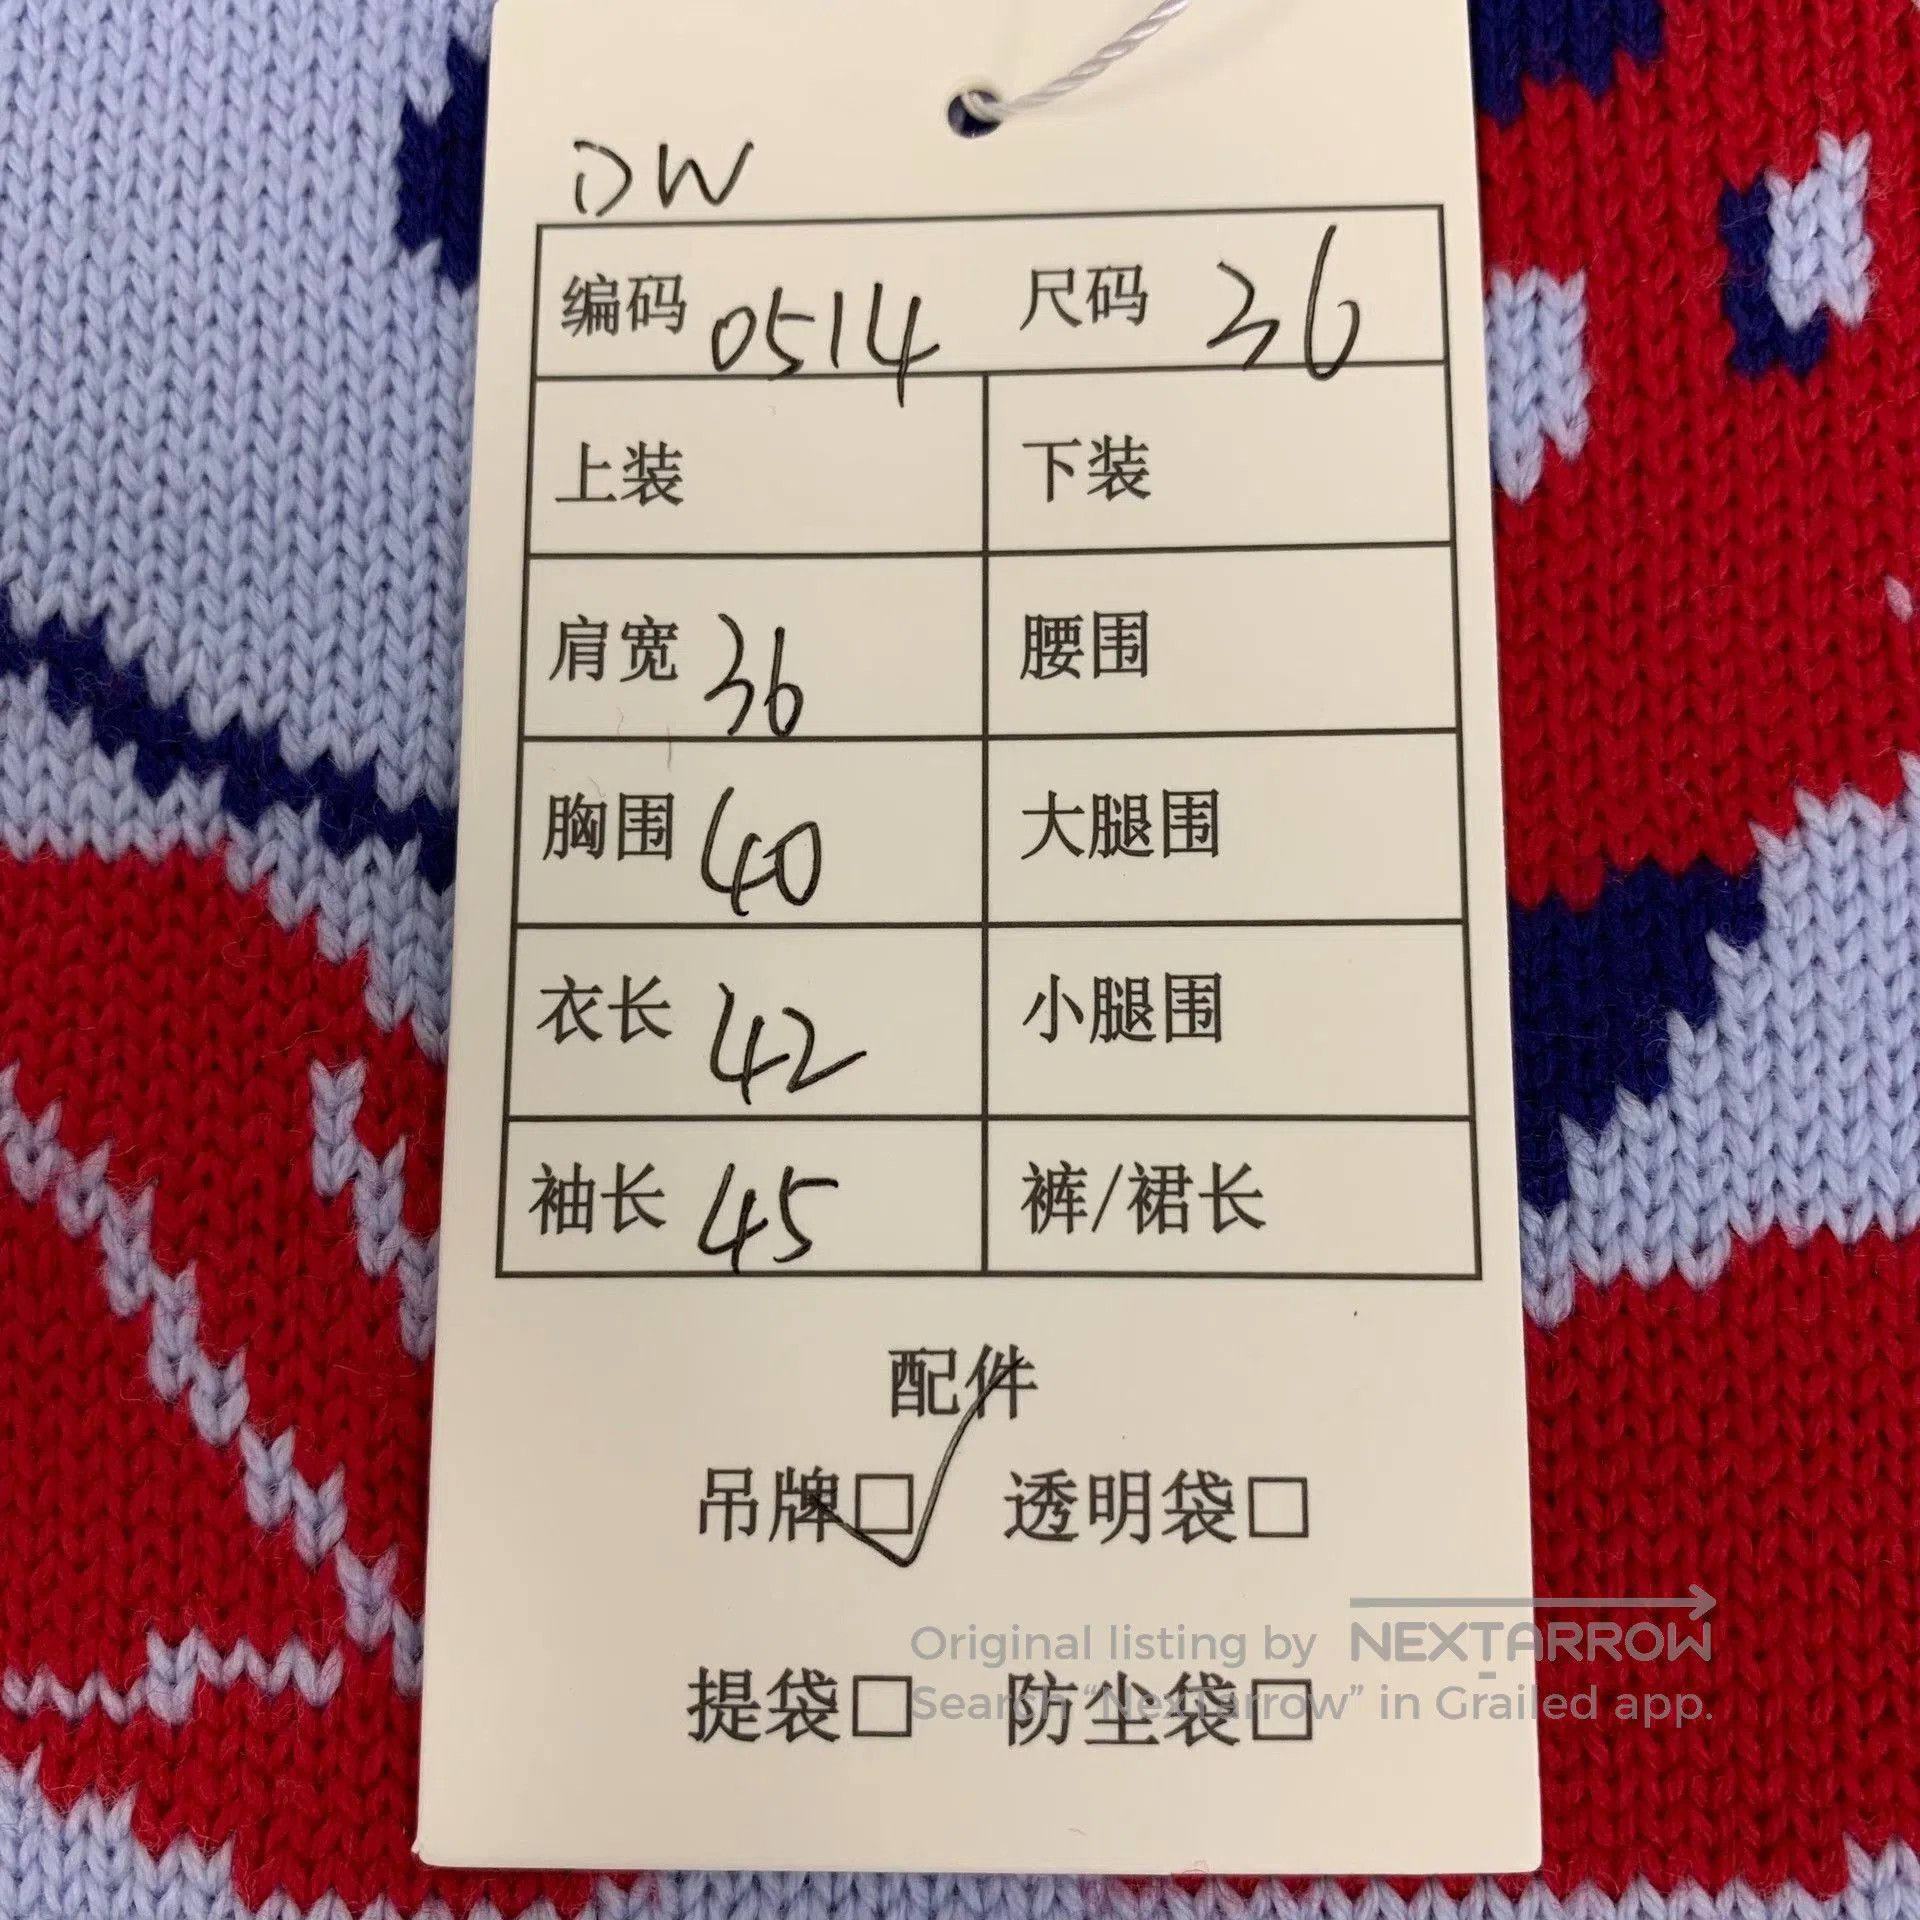 DW
编码 0514 尺码 36
上装 下装
肩宽 36 腰围
胸围 40 大腿围
衣长 42 小腿围
袖长 45 裤/裙长
配件
吊牌□✓ 透明袋□
Original listing by NEXTARROW
提袋□ 防尘袋□
Search “NexTarrow” in Grailed app.